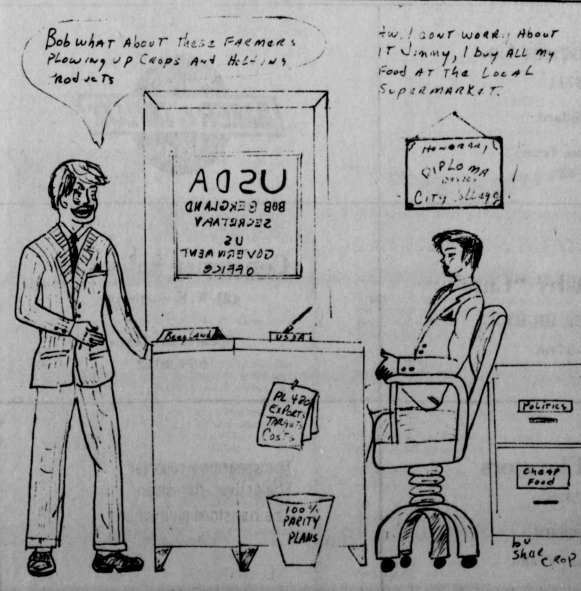 Bob what About These FARmers
Plowing up Crops And Holding
Products
Aw, I dont worry About
IT Jimmy, I buy ALL my
Food AT The Local
Supermarket.
Honorary
DIPLOMA
City
USDA
BOB BERGLAND
SECRETARY
US
GOVERNMENT
OFFICE
Bergland
USDA
PL 480
Exports
Targets
Costs
100%
PARITY
PLANS
Politics
Cheap
Food
by
Shar Crop